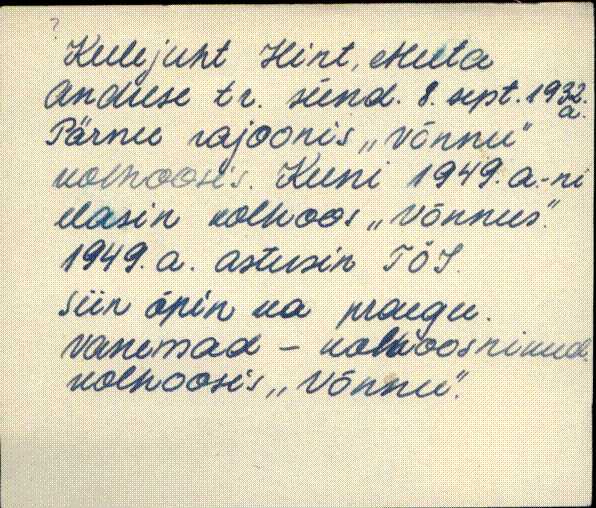 ?
Keelejuht Hint, Meeta
Anduse tr. sünd. 8. sept. 1932.
a.
Pärnu rajoonis „Võnnu"
kolhoosis. Kuni 1949. a.-ni
elasin kolhoos „Võnnus".
1949. a. astusin TÖI.
Siin õpin ka praegu.
Vanemad – kolhoosnikud
kolhoosis „Võnnu".